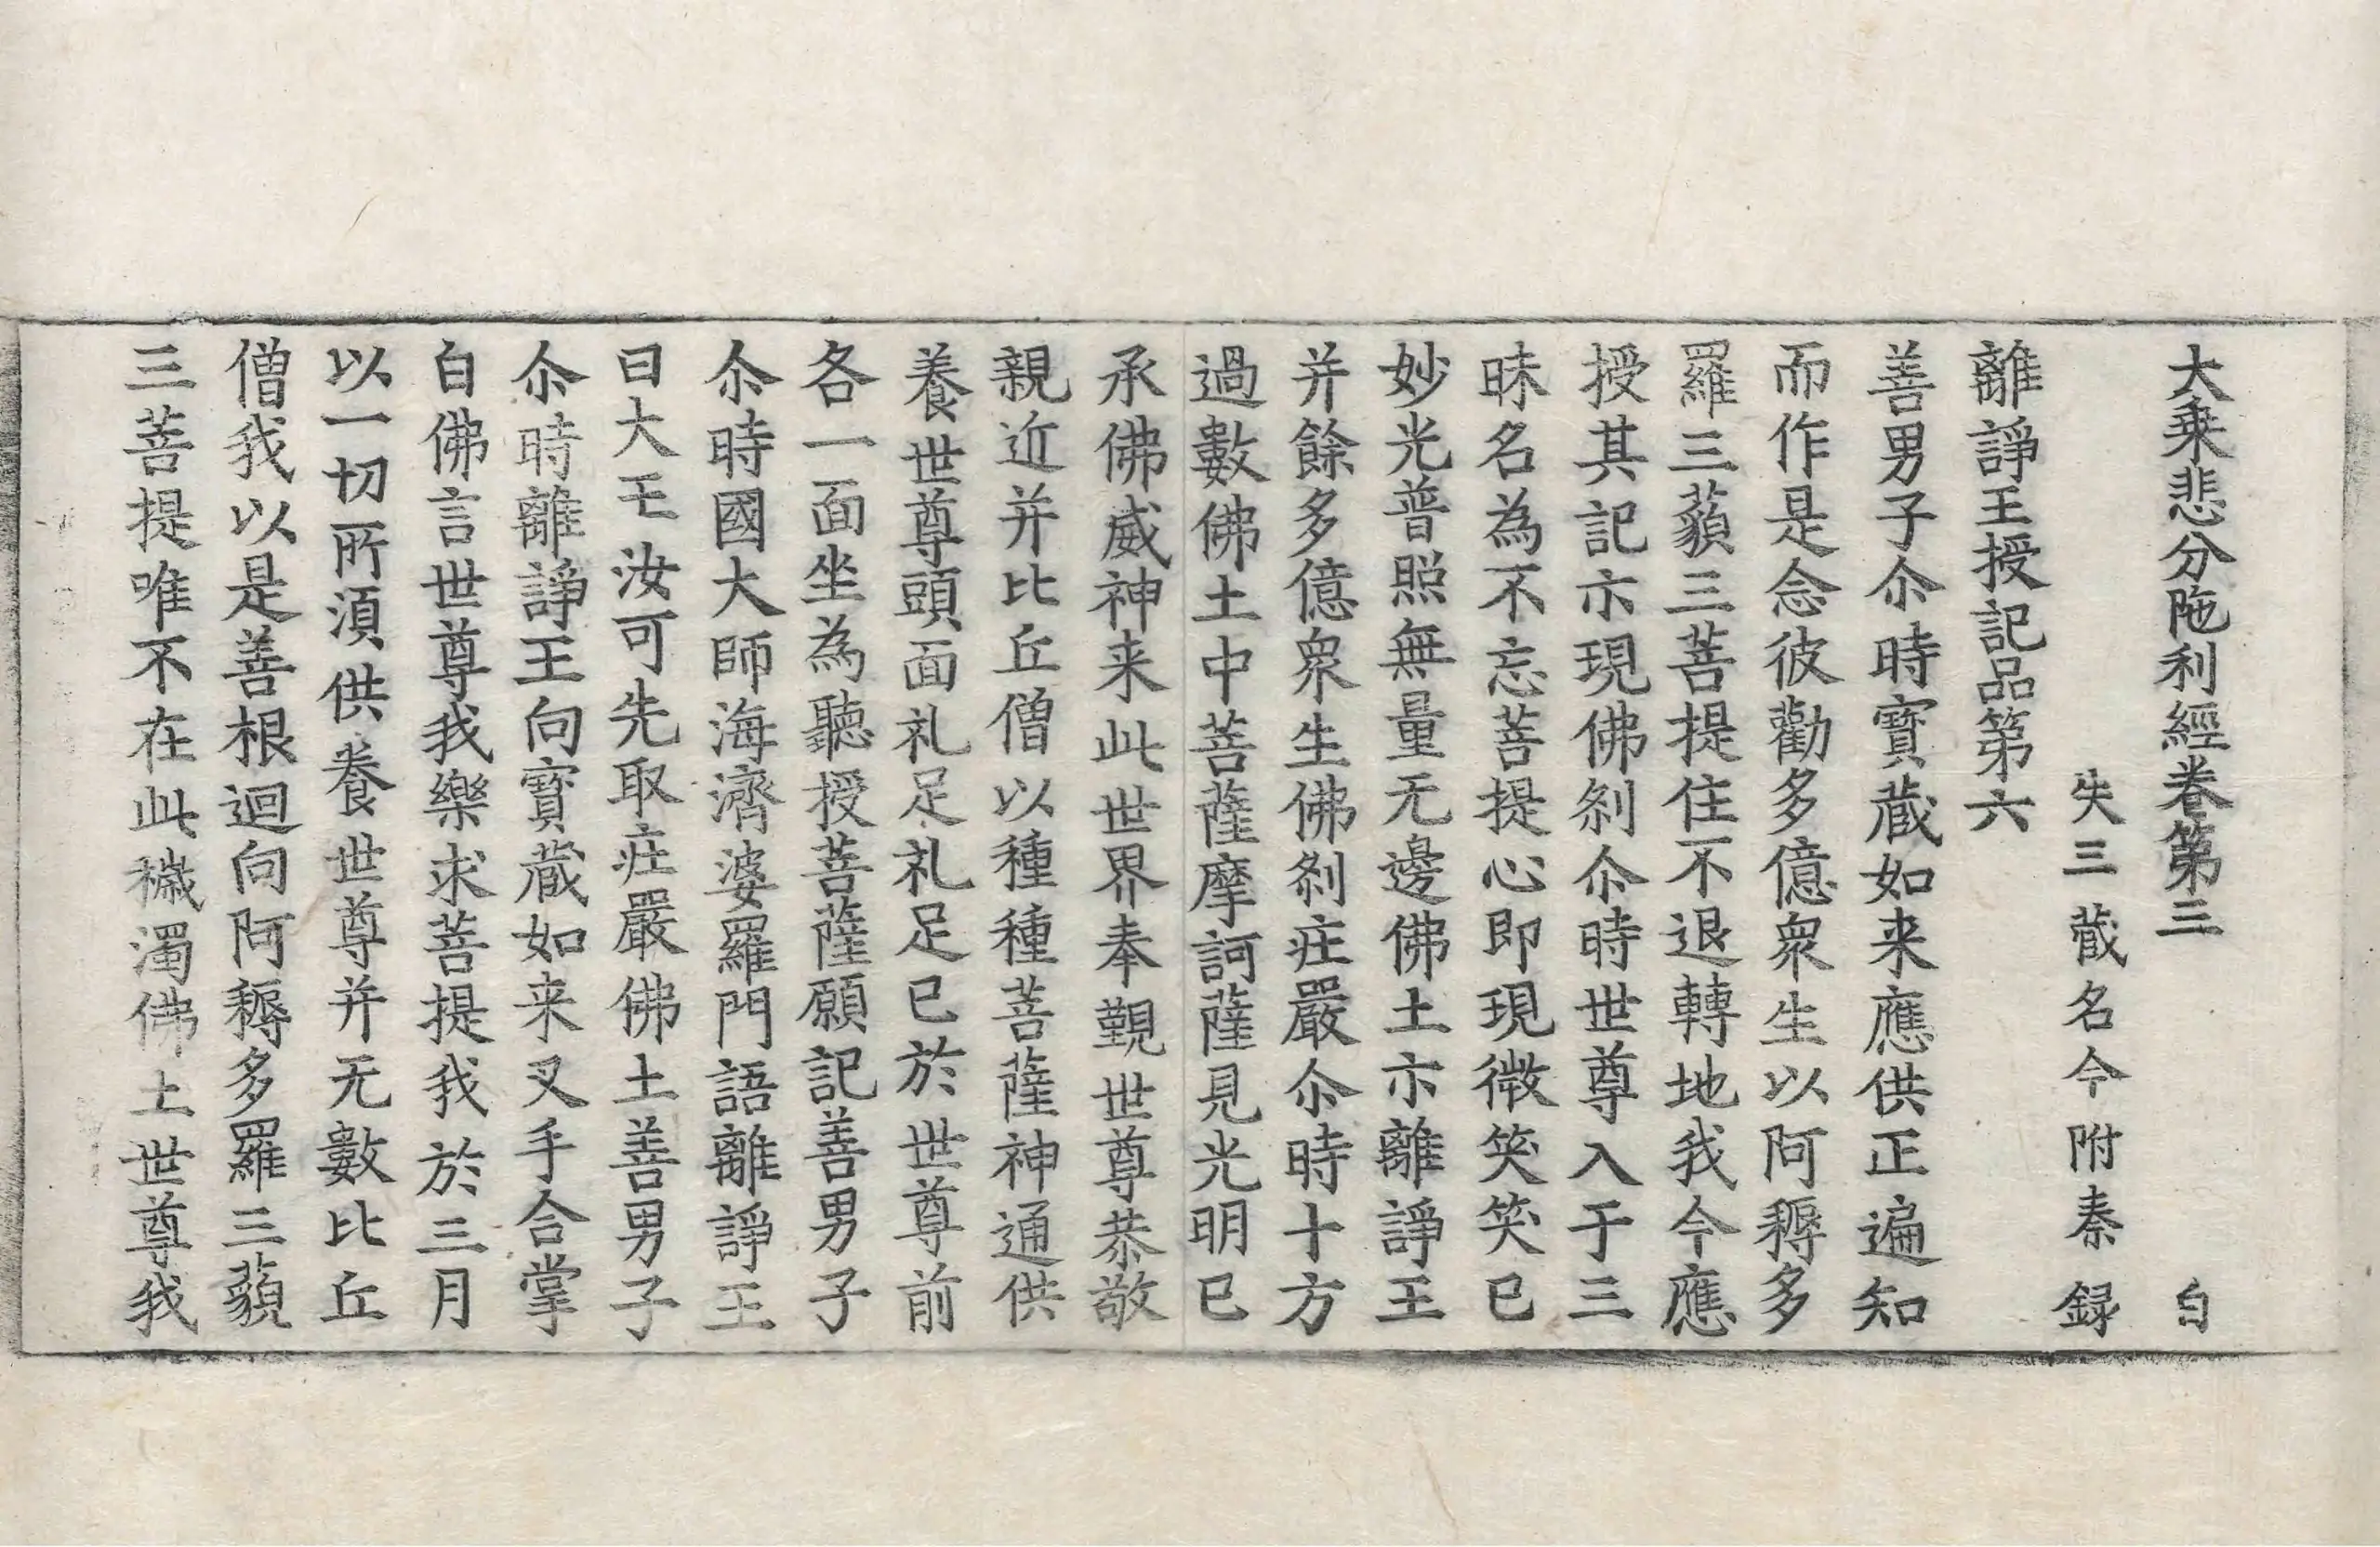 大乗悲分陁利經卷第三 白
失三蔵名今附秦録
離諍王授記品第六
善男子尒時寶蔵如来應供正遍知
而作是念彼勸多億衆生以阿耨多
羅三藐三菩提住不退轉地我今應
授其記亦現佛刹尒時世尊入于三
昧名為不忘菩提心即現微笑笑已
妙光普照無量无邊佛土亦離諍王
并餘多億衆生佛刹庄嚴尒時十方
過數佛土中菩薩摩訶薩見光明已
承佛威神来此世界奉覲世尊恭敬
親近并比丘僧以種種菩薩神通供
養世尊頭面礼足礼足已於世尊前
各一面坐為聽授菩薩願記善男子
尒時國大師海濟婆羅門語離諍王
曰大王汝可先取庄嚴佛土善男子
尒時離諍王向寶蔵如来叉手合掌
白佛言世尊我樂求菩提我於三月
以一切所湏供養世尊并无數比丘
僧我以是善根迴向阿耨多羅三藐
三菩提唯不在此穢濁佛土世尊我